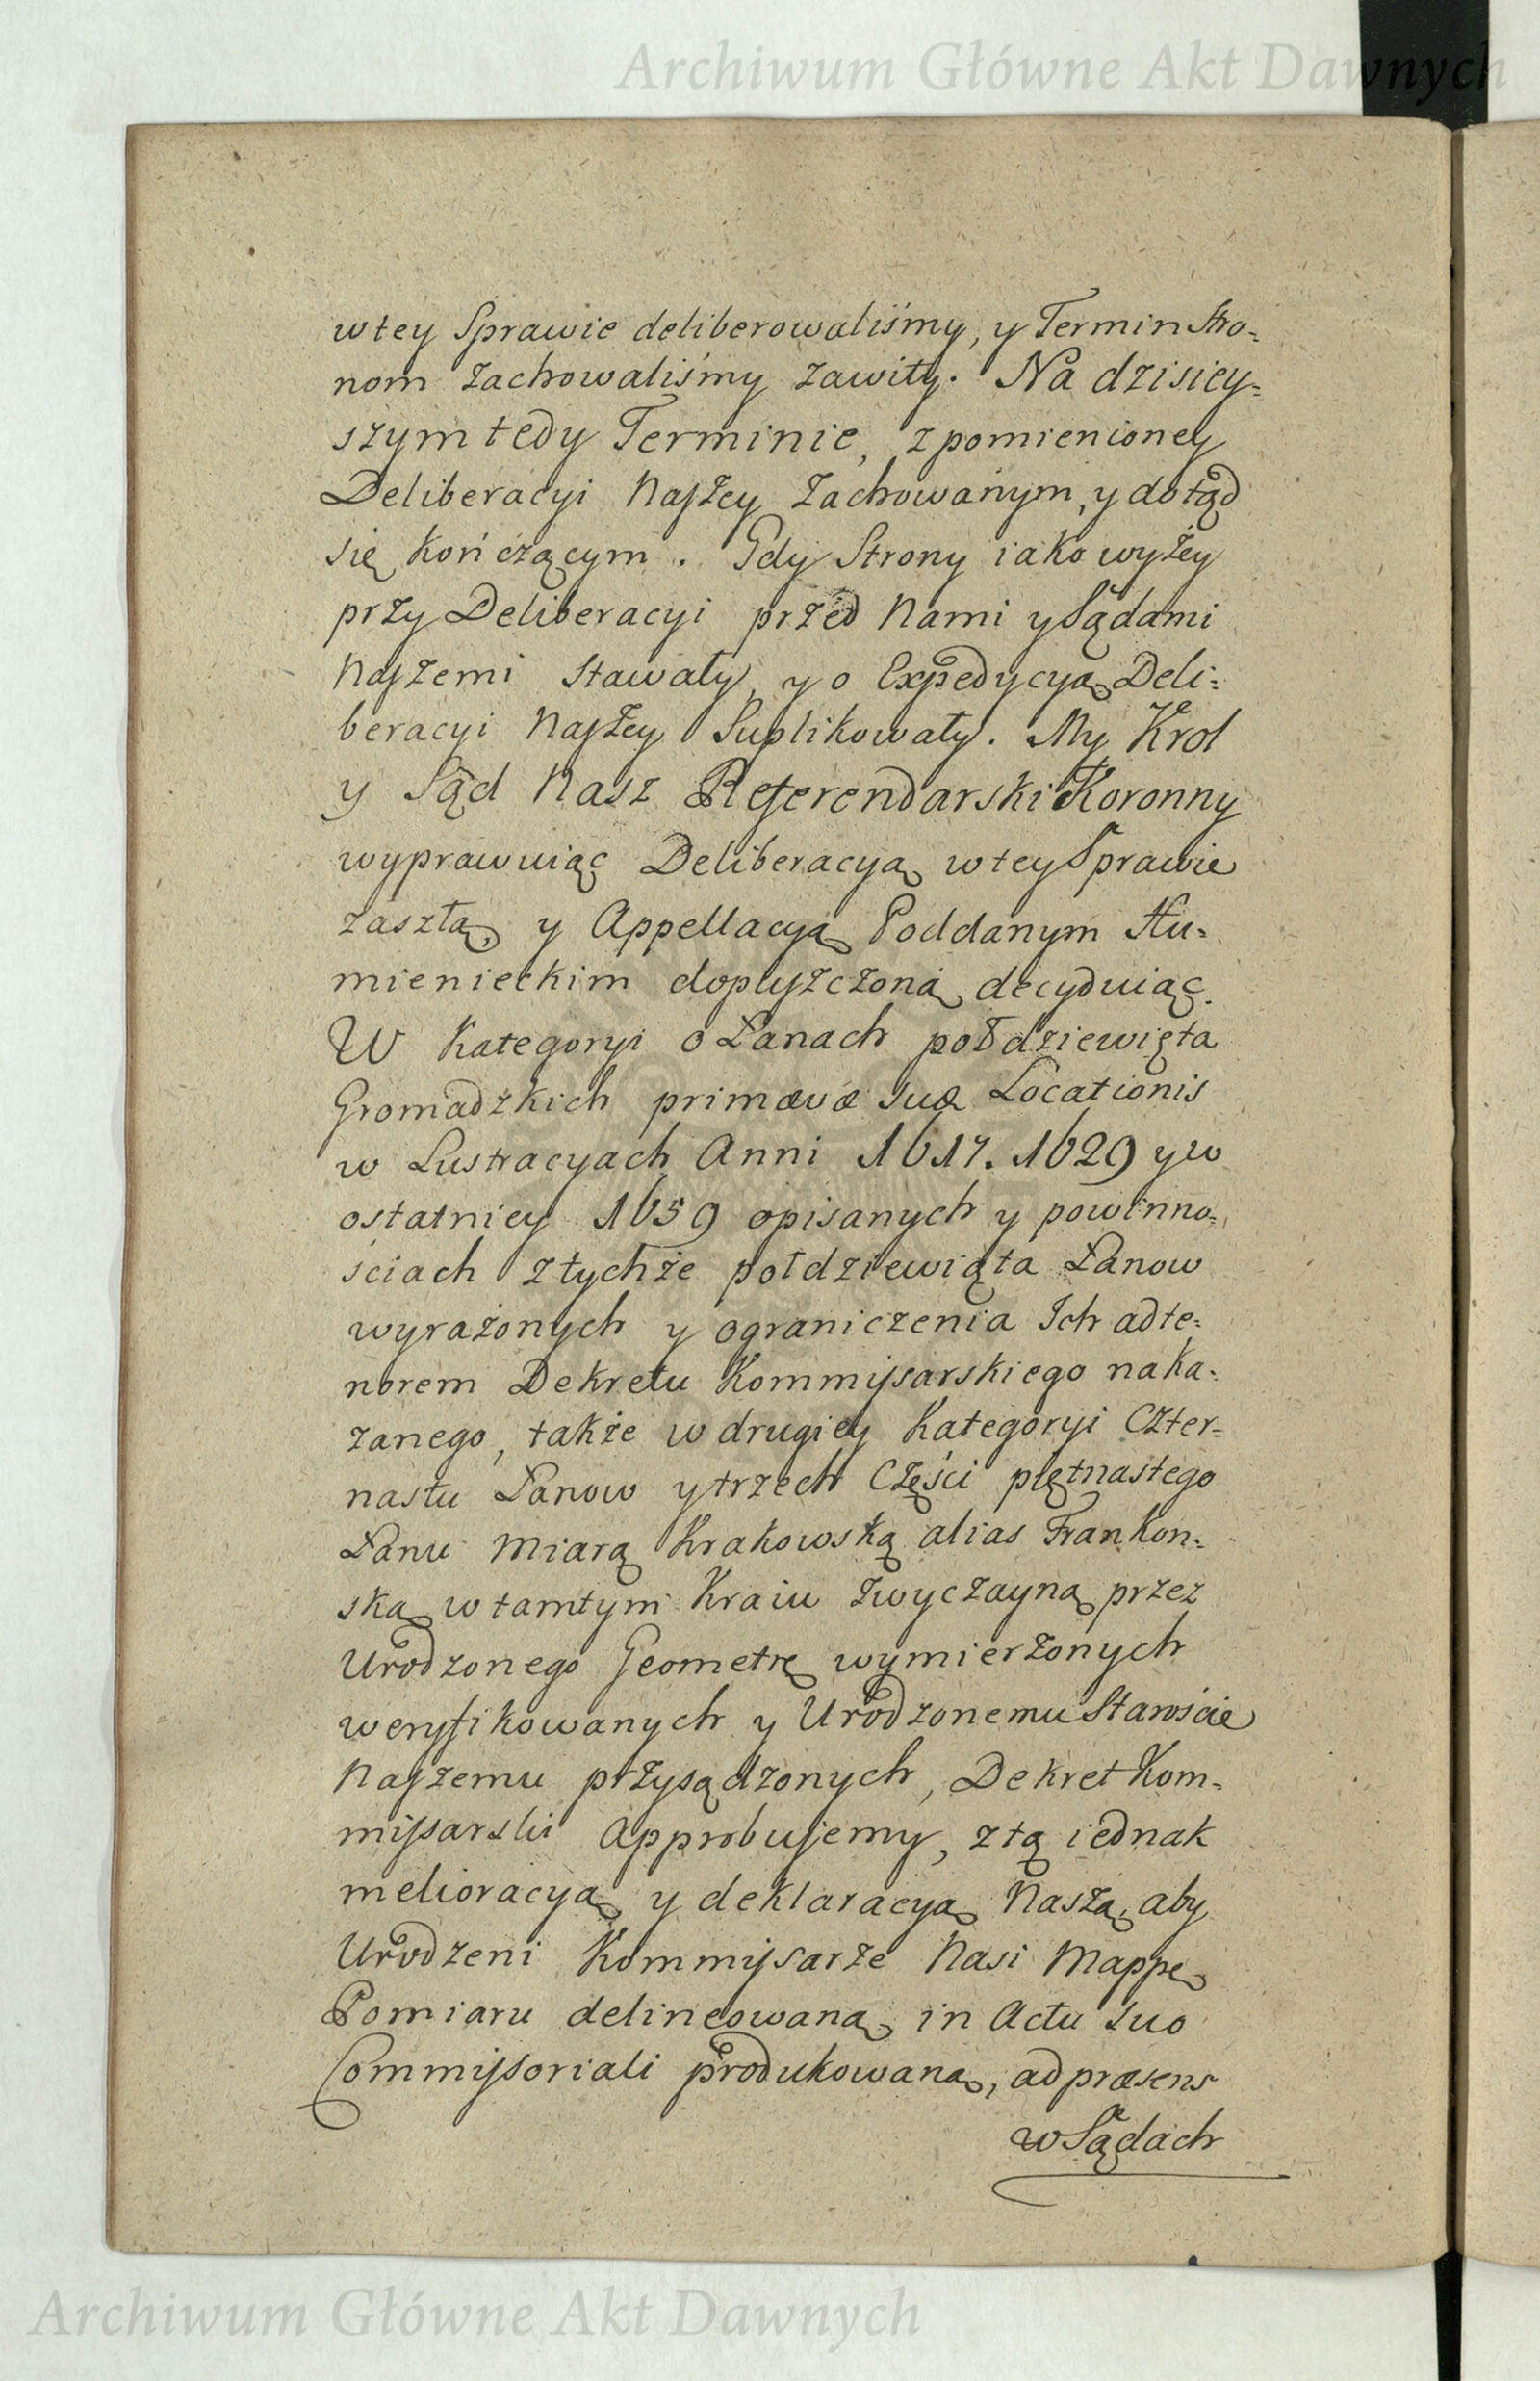 Archiwum Główne Akt Dawnych
w tey Sprawie deliberowaliśmy, y Termin Stro-
nom zachowaliśmy zawity. Na dzisiey-
szym tedy Terminie, z pomienioney
Deliberacyi Naszey zachowanym, y dotąd
się kończącym. Gdy Strony iako wyżey
przy Deliberacyi przed Nami y Sądami
Naszemi stawały, y o Expedycyą Deli-
beracyi Naszey Suplikowały. My Krol
y Sąd Nasz Referendarski Koronny
wyprawuiąc Deliberacyą w tey Sprawie
zaszłą, y Appellacyą Poddanym Hu-
mienieckim dopuszczoną decyduiąc.
W Kategoryi o Łanach połdziewięta
Gromadzkich primævæ suæ Locationis
w Lustracyach Anni 1617. 1629 y w
ostatniey 1659 opisanych y powinno-
ściach z tychże połdziewiąta Łanow
wyrażonych y ograniczenia Ich ad te-
norem Dekretu Kommissarskiego naka-
zanego, także w drugiey Kategoryi Czter-
nastu Łanow y trzech Części piętnastego
Łanu Miarą Krakowską alias Frankon-
ską w tamtym Kraiu zwyczayną przez
Urodzonego Geometrę wymierzonych
weryfikowanych y Urodzonemu Staroście
Naszemu przysądzonych, Dekret Kom-
missarski Approbujemy, z tą iednak
melioracyą y deklaracyą Naszą, aby
Urodzeni Kommissarze Nasi Mappę
Pomiaru delineowaną, in Actu suo
Commissoriali produkowaną, ad præsens
w Sądach
Archiwum Główne Akt Dawnych